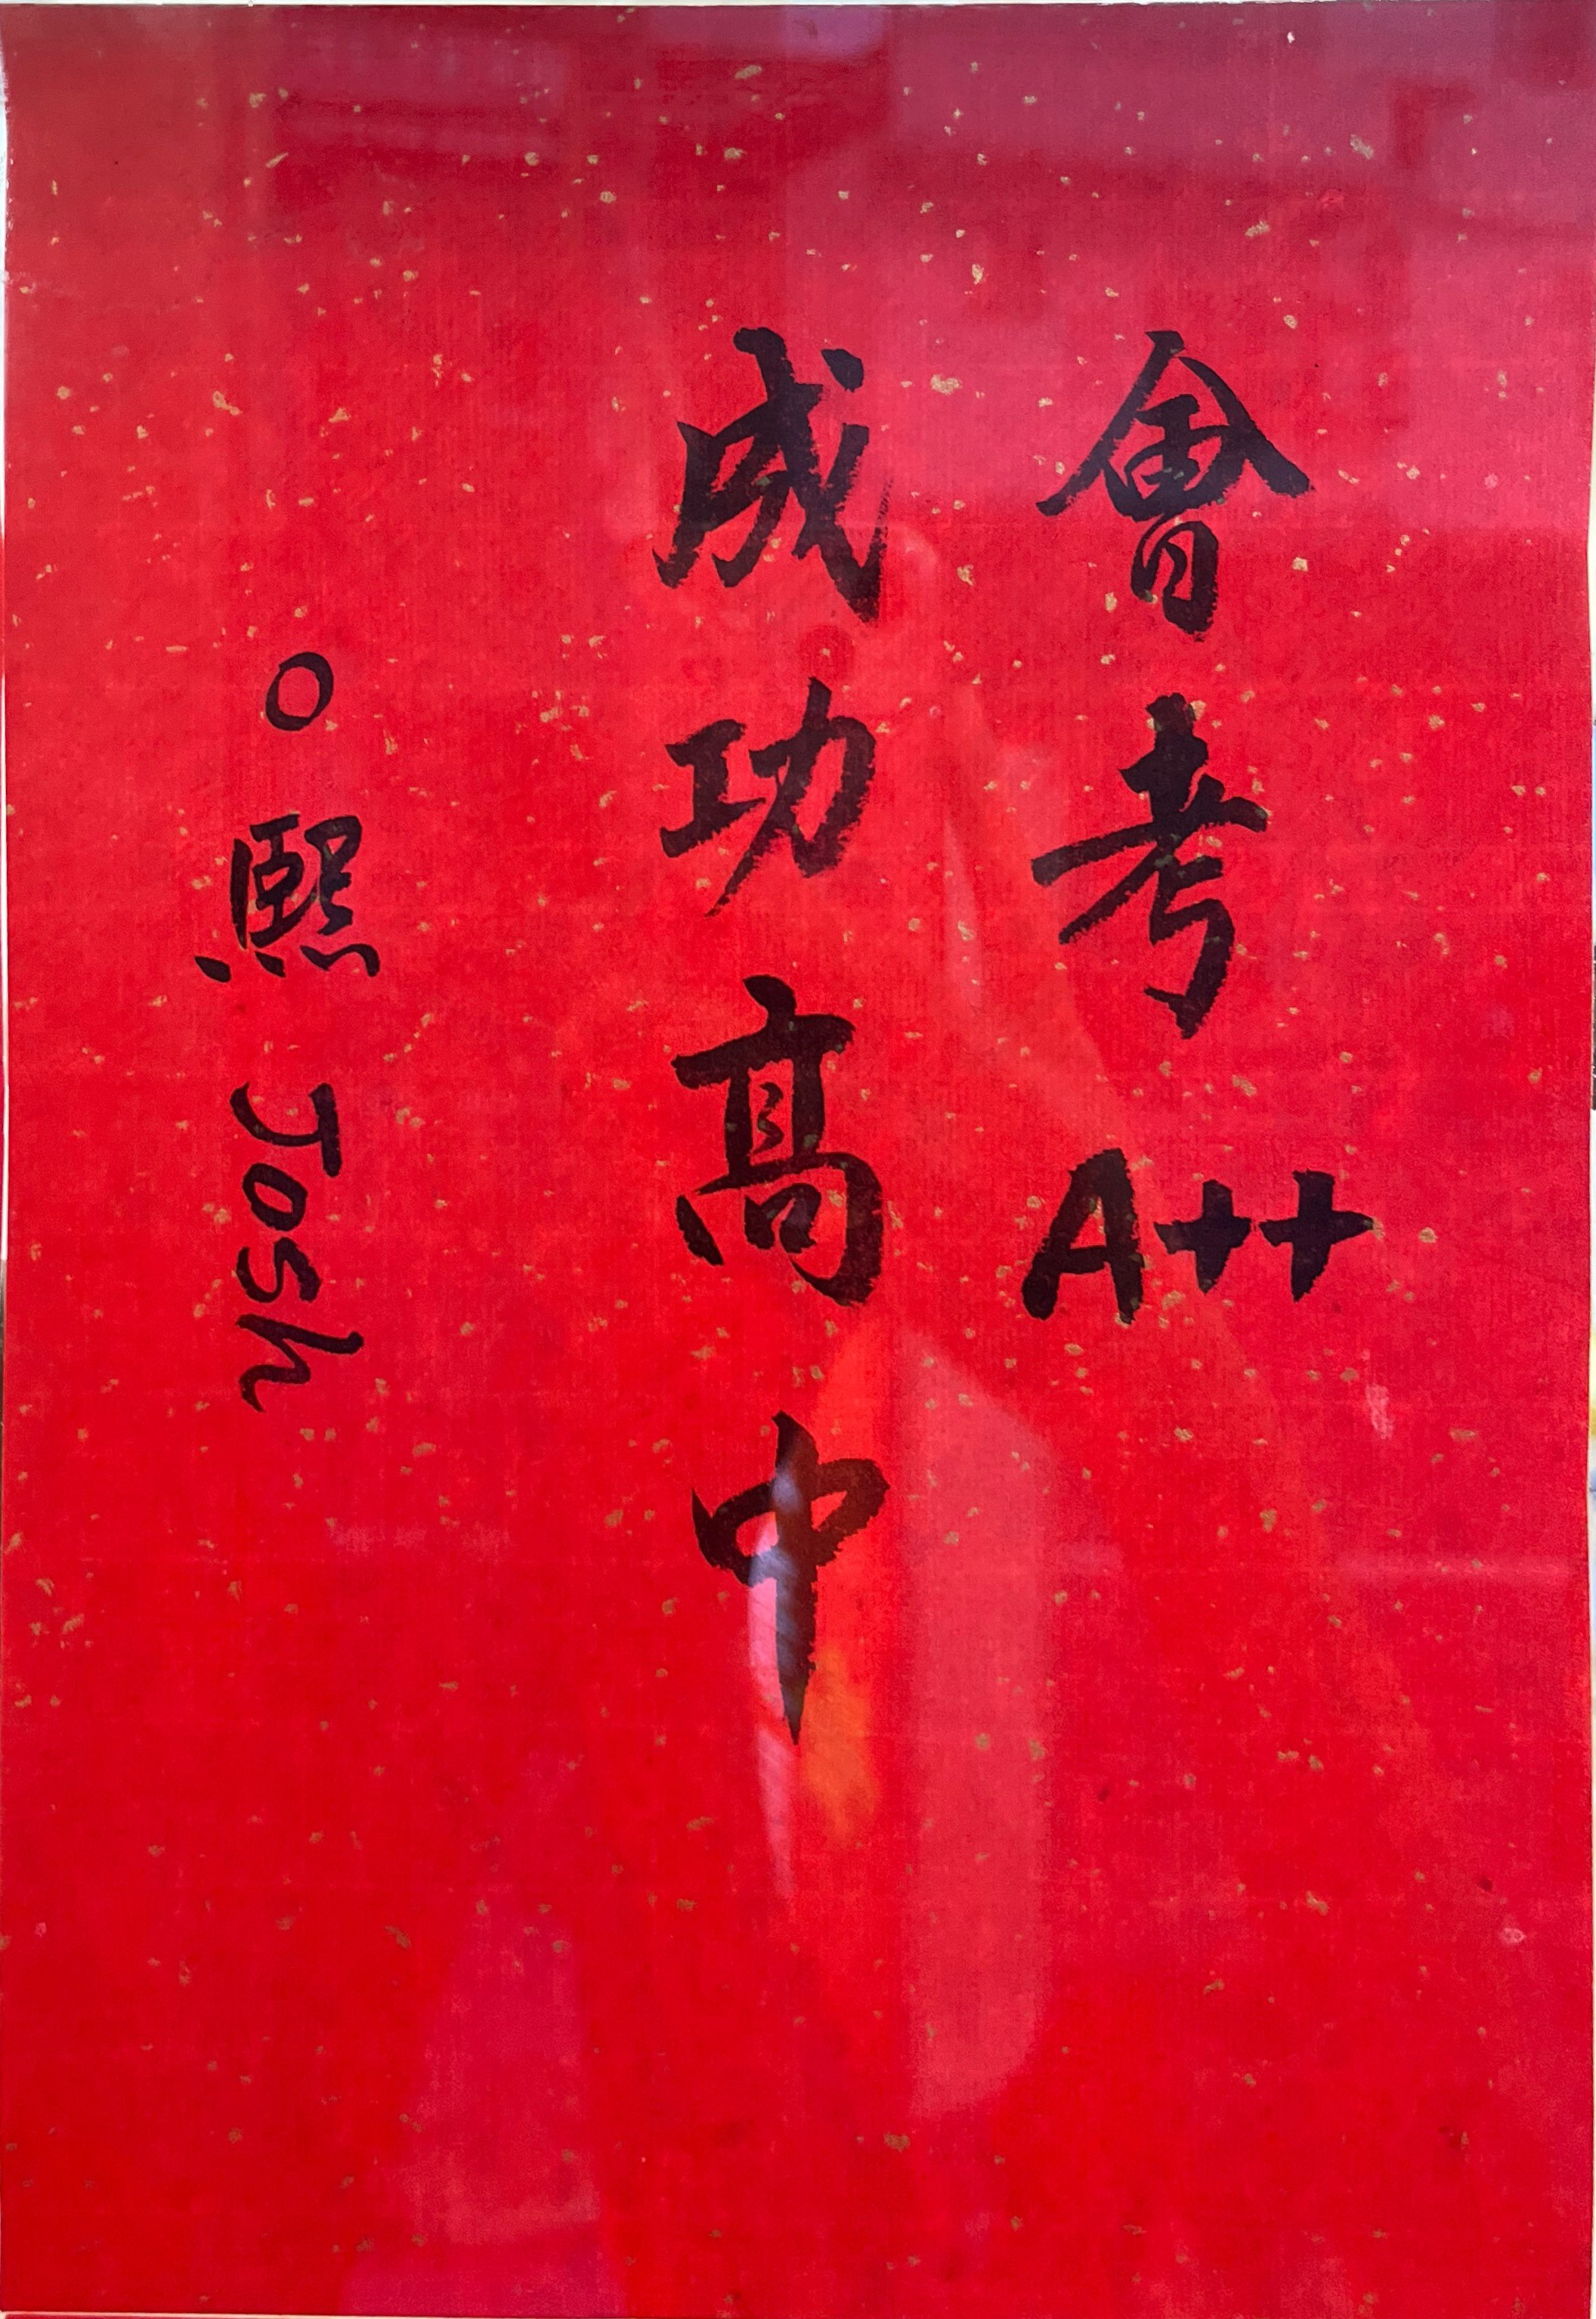 會考A++
成功高中
○熙 Josh